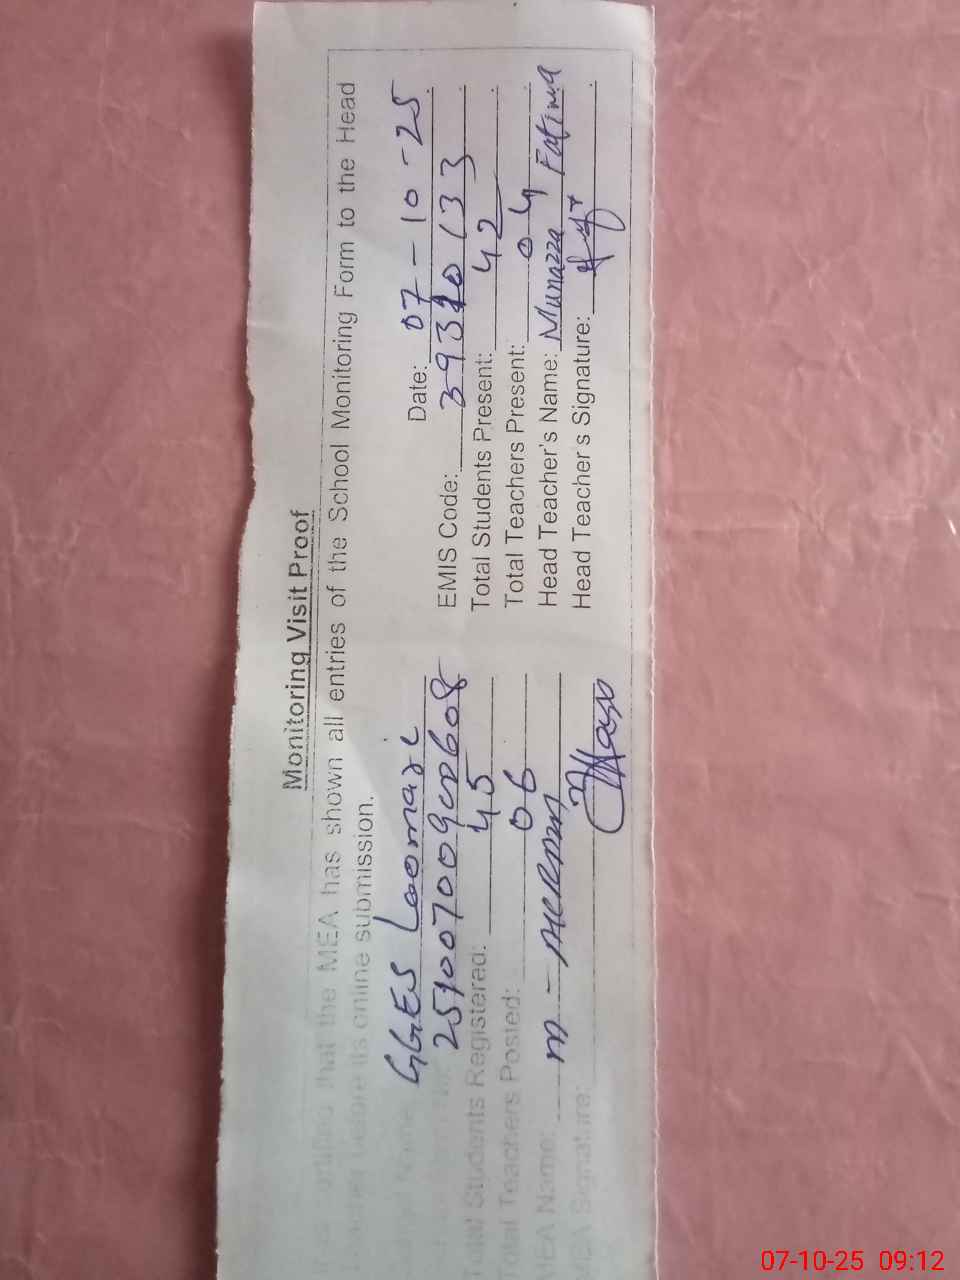 Monitoring Visit Proof
that the MEA has shown all entries of the School Monitoring Form to the Head
before its online submission.
GGES Date: 07-10-25
EMIS Code: 39310133
Total Students Registered: 45 Total Students Present: 42
Total Teachers Posted: 06 Total Teachers Present: 04
MEA Name: M- AKRAM Head Teacher's Name: Munazza Fatima
MEA Signature: Head Teacher's Signature:
07-10-25 09:12